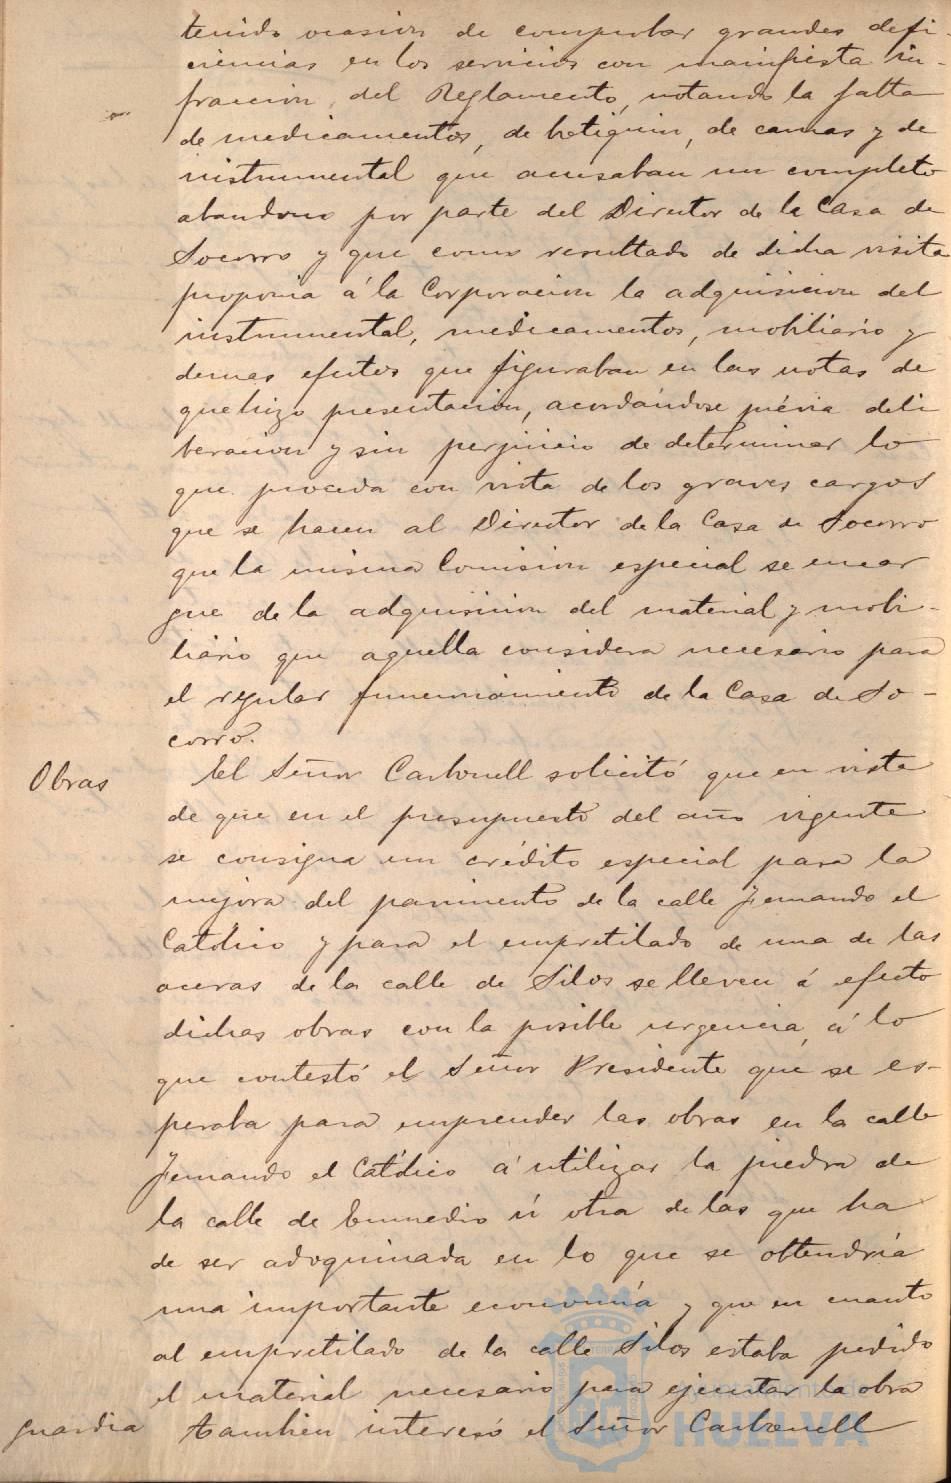 tenido ocasion de comprobar grandes defi-
ciencias en los servicios con manifiesta in-
fraccion, del Reglamento, notando la falta
de medicamentos, de botiquin, de camas y de
instrumental que acusaban un completo
abandono por parte del Director de la Casa de
Socorro y que como resultado de dicha visita
proponia á la Corporacion la adquisicion del
instrumental, medicamentos, mobiliario y
demas efectos que figuraban en las notas de
que hizo presentacion, acordándose prévia deli
beracion y sin perjuicio de determinar lo
que proceda con vista de los graves cargos
que se hacen al Director de la Casa de Socorro
que la misma Comision especial se encar
gue de la adquisicion del material y mobi-
liario que aquella considera necesario para
el regular funcionamiento de la Casa de So-
corro.
Obras El Señor Carbonell solicitó que en vista
de que en el presupuesto del año vigente
se consigna un crédito especial para la
mejora del pavimento de la calle Fernando el
Católico y para el empretilado de una de las
aceras de la calle de Silos se lleven á efecto
dichas obras con la posible urgencia, á lo
que contestó el Señor Presidente que se es-
peraba para emprender las obras en la calle
Fernando el Católico á utilizar la piedra de
la calle de Enmedio ú otra de las que ha
de ser adoquinada en lo que se obtendría
una importante economía y que en cuanto
al empretilado de la calle Silos estaba pedido
el material necesario para ejecutar la obra
Guardia tambien interesó el Señor Carbonell
Ayuntamiento de
HUELVA